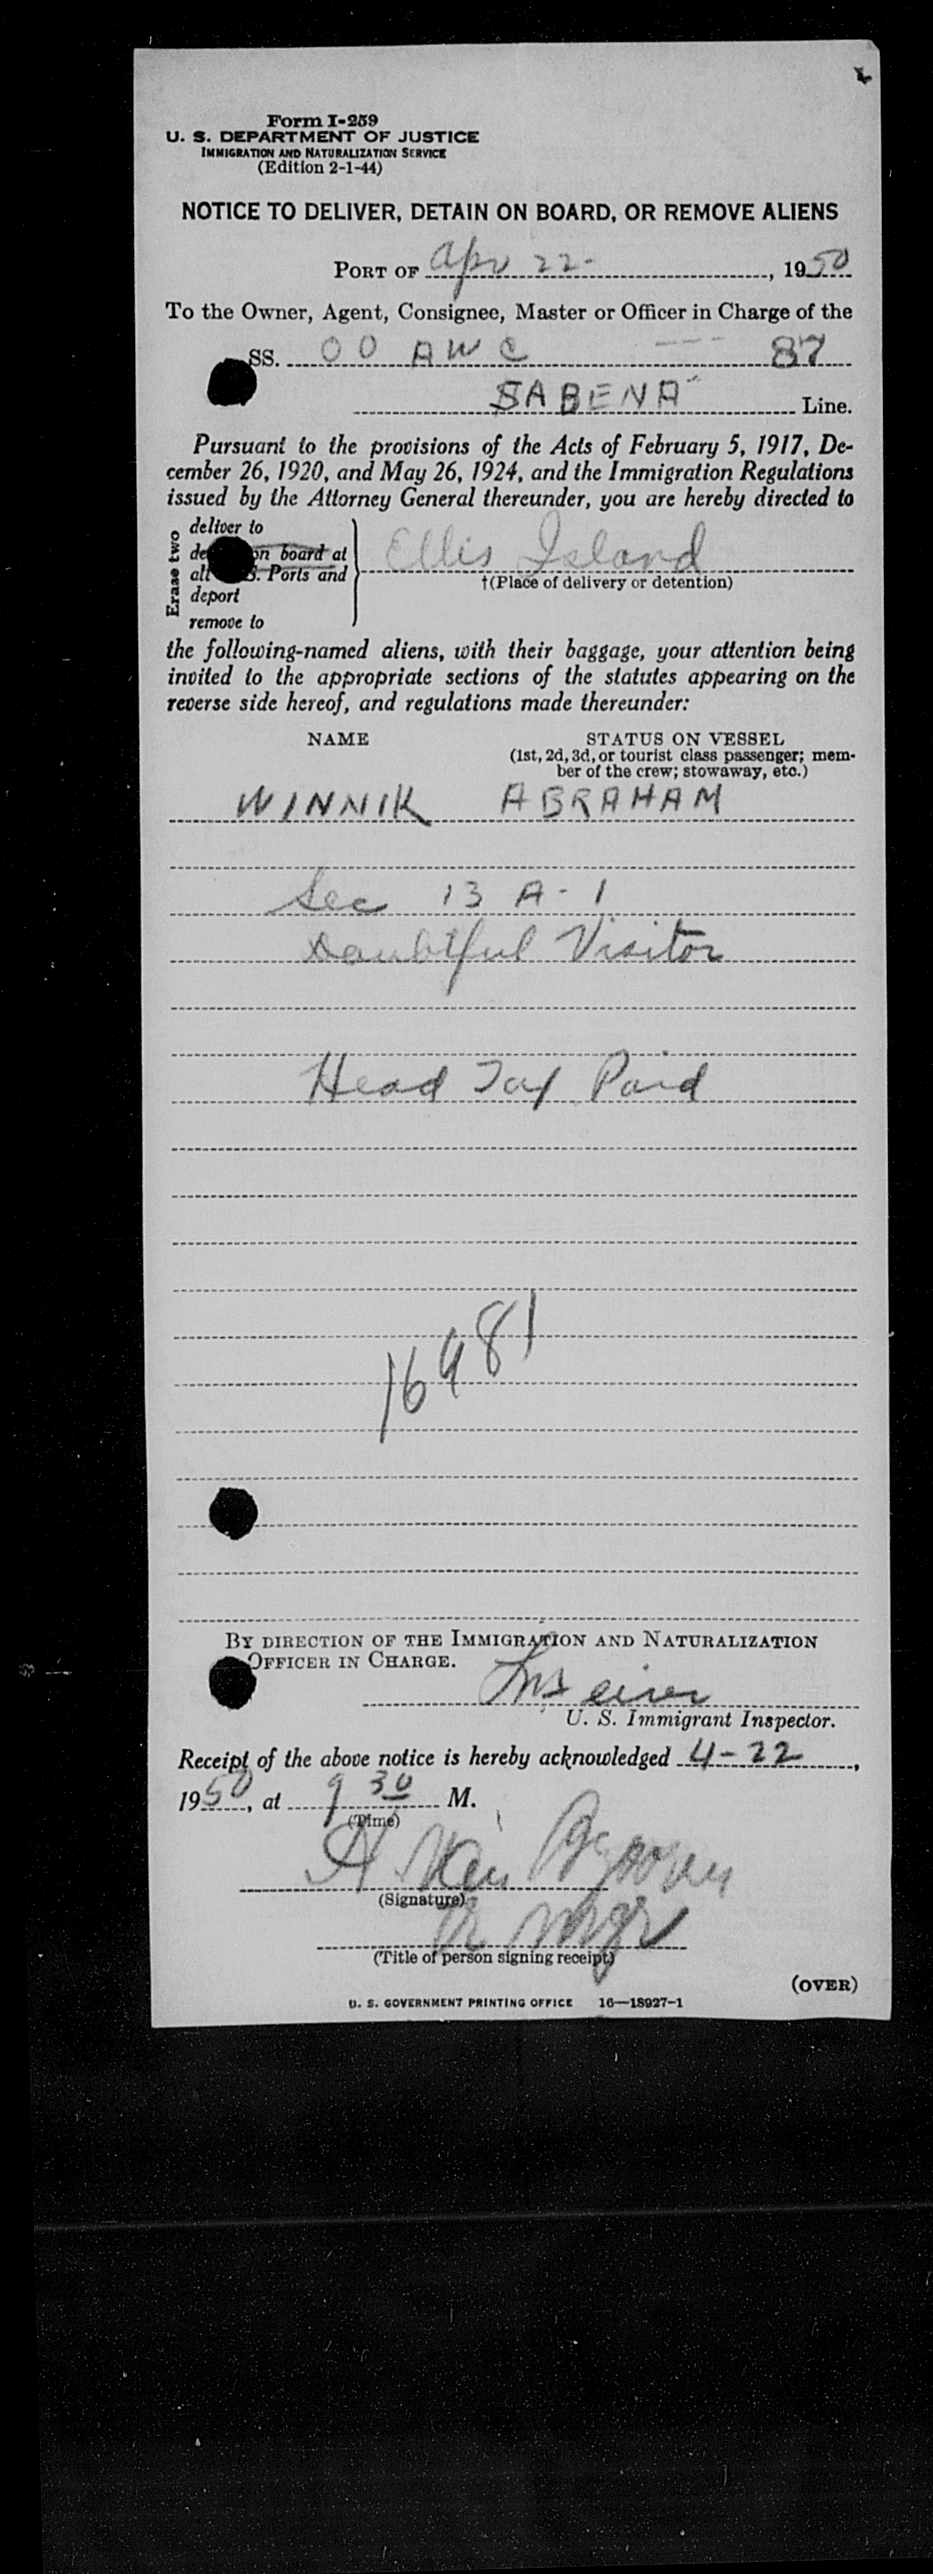 Form I-259
U. S. DEPARTMENT OF JUSTICE
IMMIGRATION AND NATURALIZATION SERVICE
(Edition 2-1-44)
NOTICE TO DELIVER, DETAIN ON BOARD, OR REMOVE ALIENS
PORT OF Apr 22-, 1950
To the Owner, Agent, Consignee, Master or Officer in Charge of the
SS. OO AWC --- 87
SABENA Line.
Pursuant to the provisions of the Acts of February 5, 1917, De-
cember 26, 1920, and May 26, 1924, and the Immigration Regulations
issued by the Attorney General thereunder, you are hereby directed to
Erase two
deliver to
on board at
all S. Ports and
deport
remove to
Ellis Island
†(Place of delivery or detention)
the following-named aliens, with their baggage, your attention being
invited to the appropriate sections of the statutes appearing on the
reverse side hereof, and regulations made thereunder:
NAME STATUS ON VESSEL
(1st, 2d, 3d, or tourist class passenger; mem-
ber of the crew; stowaway, etc.)
WINNIK ABRAHAM
Sec 13 A-1
Doubtful Visitor
Head Tax Paid
16981
BY DIRECTION OF THE IMMIGRATION AND NATURALIZATION
OFFICER IN CHARGE.
U. S. Immigrant Inspector.
Receipt of the above notice is hereby acknowledged 4-22,
1950, at 9 30 M.
(Time)
A Van
(Signature)
mgr
(Title of person signing receipt)
(OVER)
U. S. GOVERNMENT PRINTING OFFICE 16—18927-1